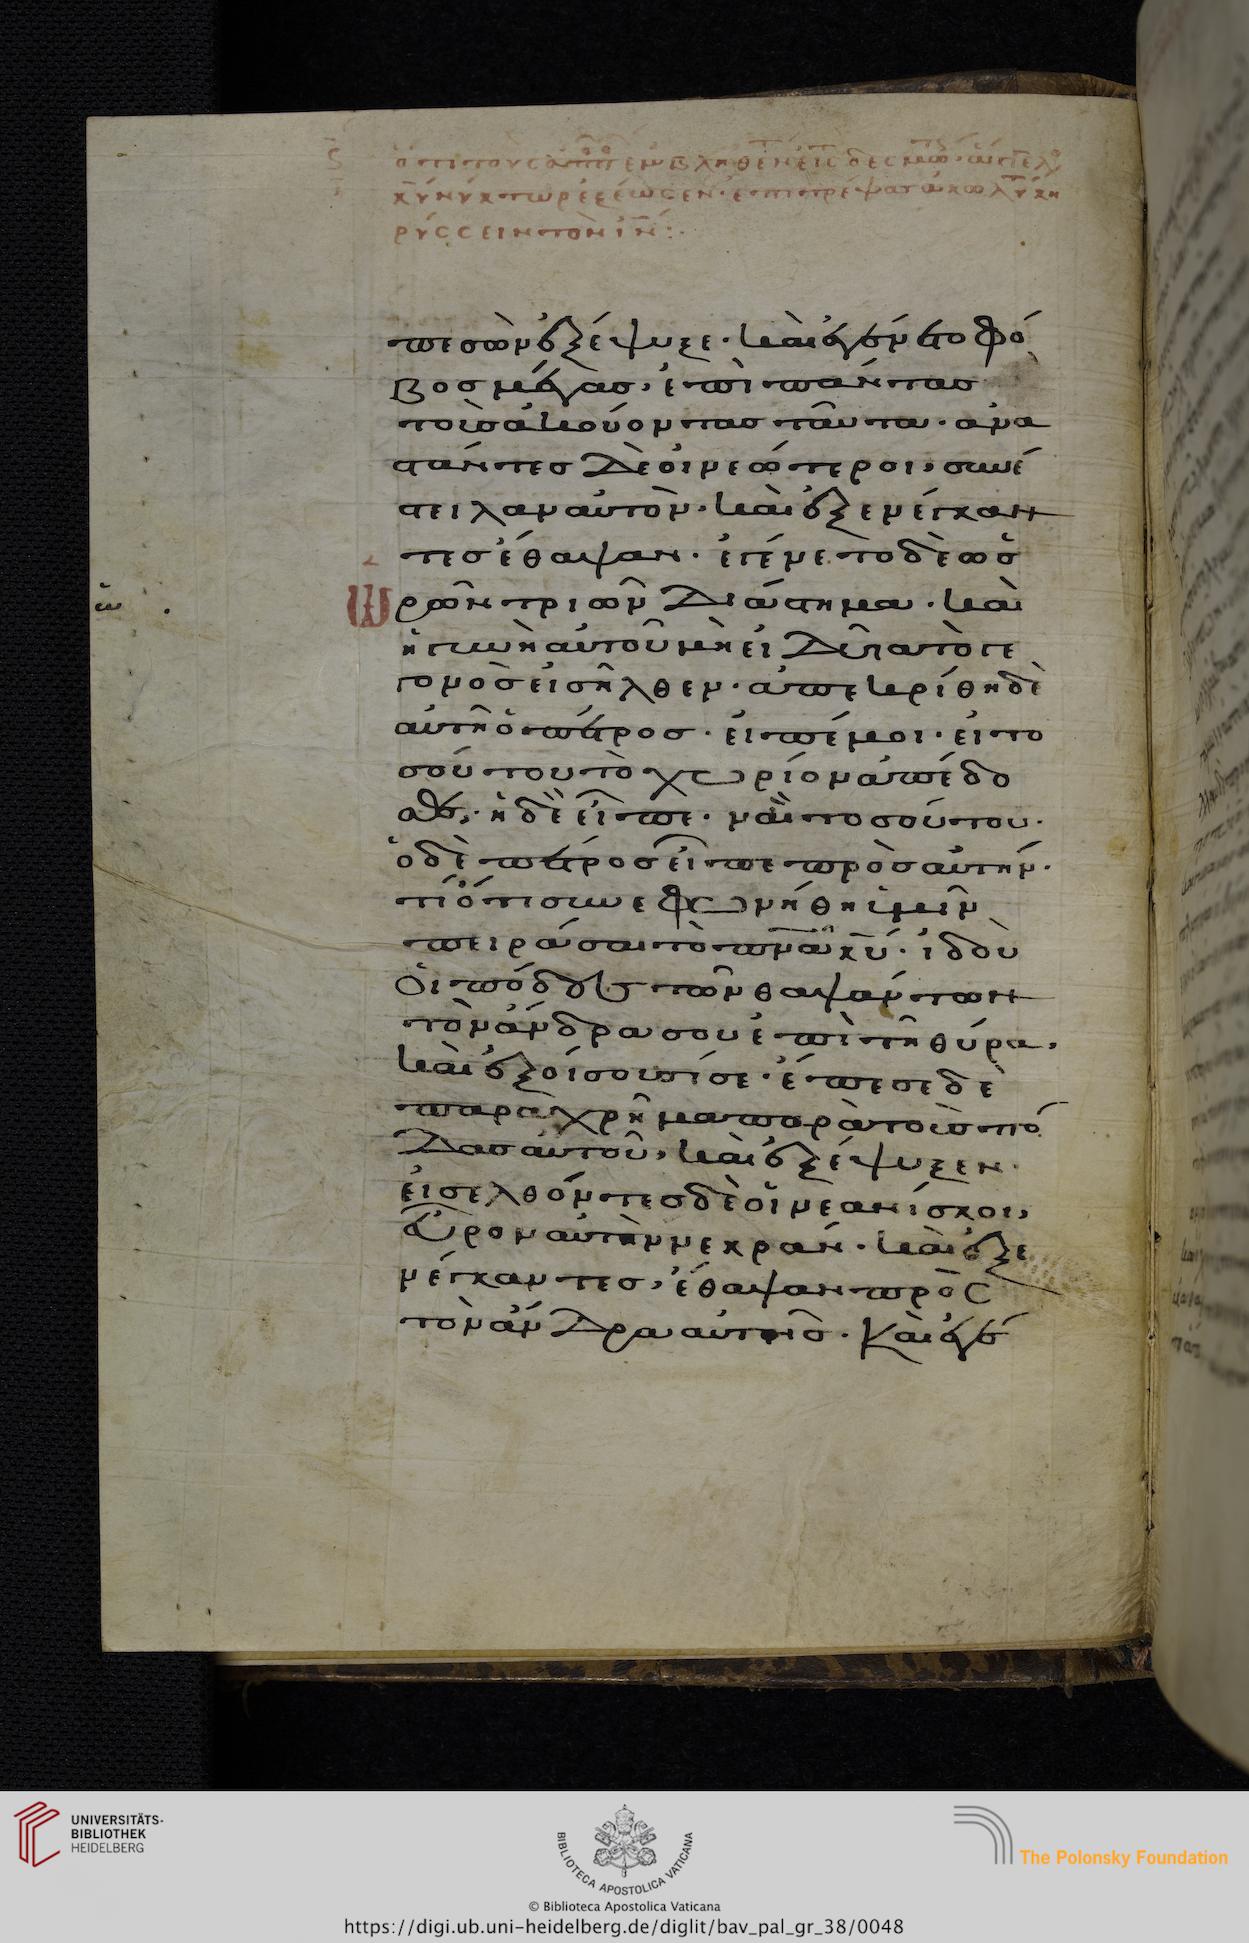 πεσὼν ἐξέψυξε· καὶ ἐγένετο φό
βος μέγας, ἐπὶ πάντας
τοὺς ἀκούοντας ταῦτα· ἀνα
στάντες δὲ οἱ νεώτεροι, συνέ
στειλαν αὐτὸν· καὶ ἐξενέγκαν
τες ἔθαψαν· ἐγένετο δὲ ὡς
ὡρῶν τριῶν διάστημα· καὶ
ἡ γυνὴ αὐτοῦ μὴ εἰδυῖα τὸ γε
γονὸς εἰσῆλθεν· ἀπεκρίθη δὲ
αὐτῆ ὁ πέτρος· εἰπέ μοι· εἰ το
σούτου τὸ χωρίον ἀπέδο
σθε· ἡ δὲ εἶπε· ναὶ τοσούτου·
ὁ δὲ πέτρος εἶπε πρὸς αὐτήν·
τί ὅτι συνεφωνήθη ὑμῖν
πειράσαι τὸ πνα κυ· ἰδοὺ
οἱ πόδες τῶν θαψάντων
τὸν ἄνδρα σου ἐπὶ τῆ θύρα,
καὶ ἐξοίσουσί σε· ἔπεσε δὲ
παραχρῆμα παρὰ τοὺς πό
δας αὐτοῦ, καὶ ἐξέψυξεν·
εἰσελθόντες δὲ οἱ νεανίσκοι,
εὗρον αὐτὴν νεκράν· καὶ ἐξε
νέγκαντες, ἔθαψαν πρὸς
τὸν ἄνδρα αὐτῆς· καὶ ἐγέ
UNIVERSITÄTS-
BIBLIOTHEK
HEIDELBERG
BIBLIOTECA APOSTOLICA VATICANA
The Polonsky Foundation
© Biblioteca Apostolica Vaticana
https://digi.ub.uni-heidelberg.de/diglit/bav_pal_gr_38/0048